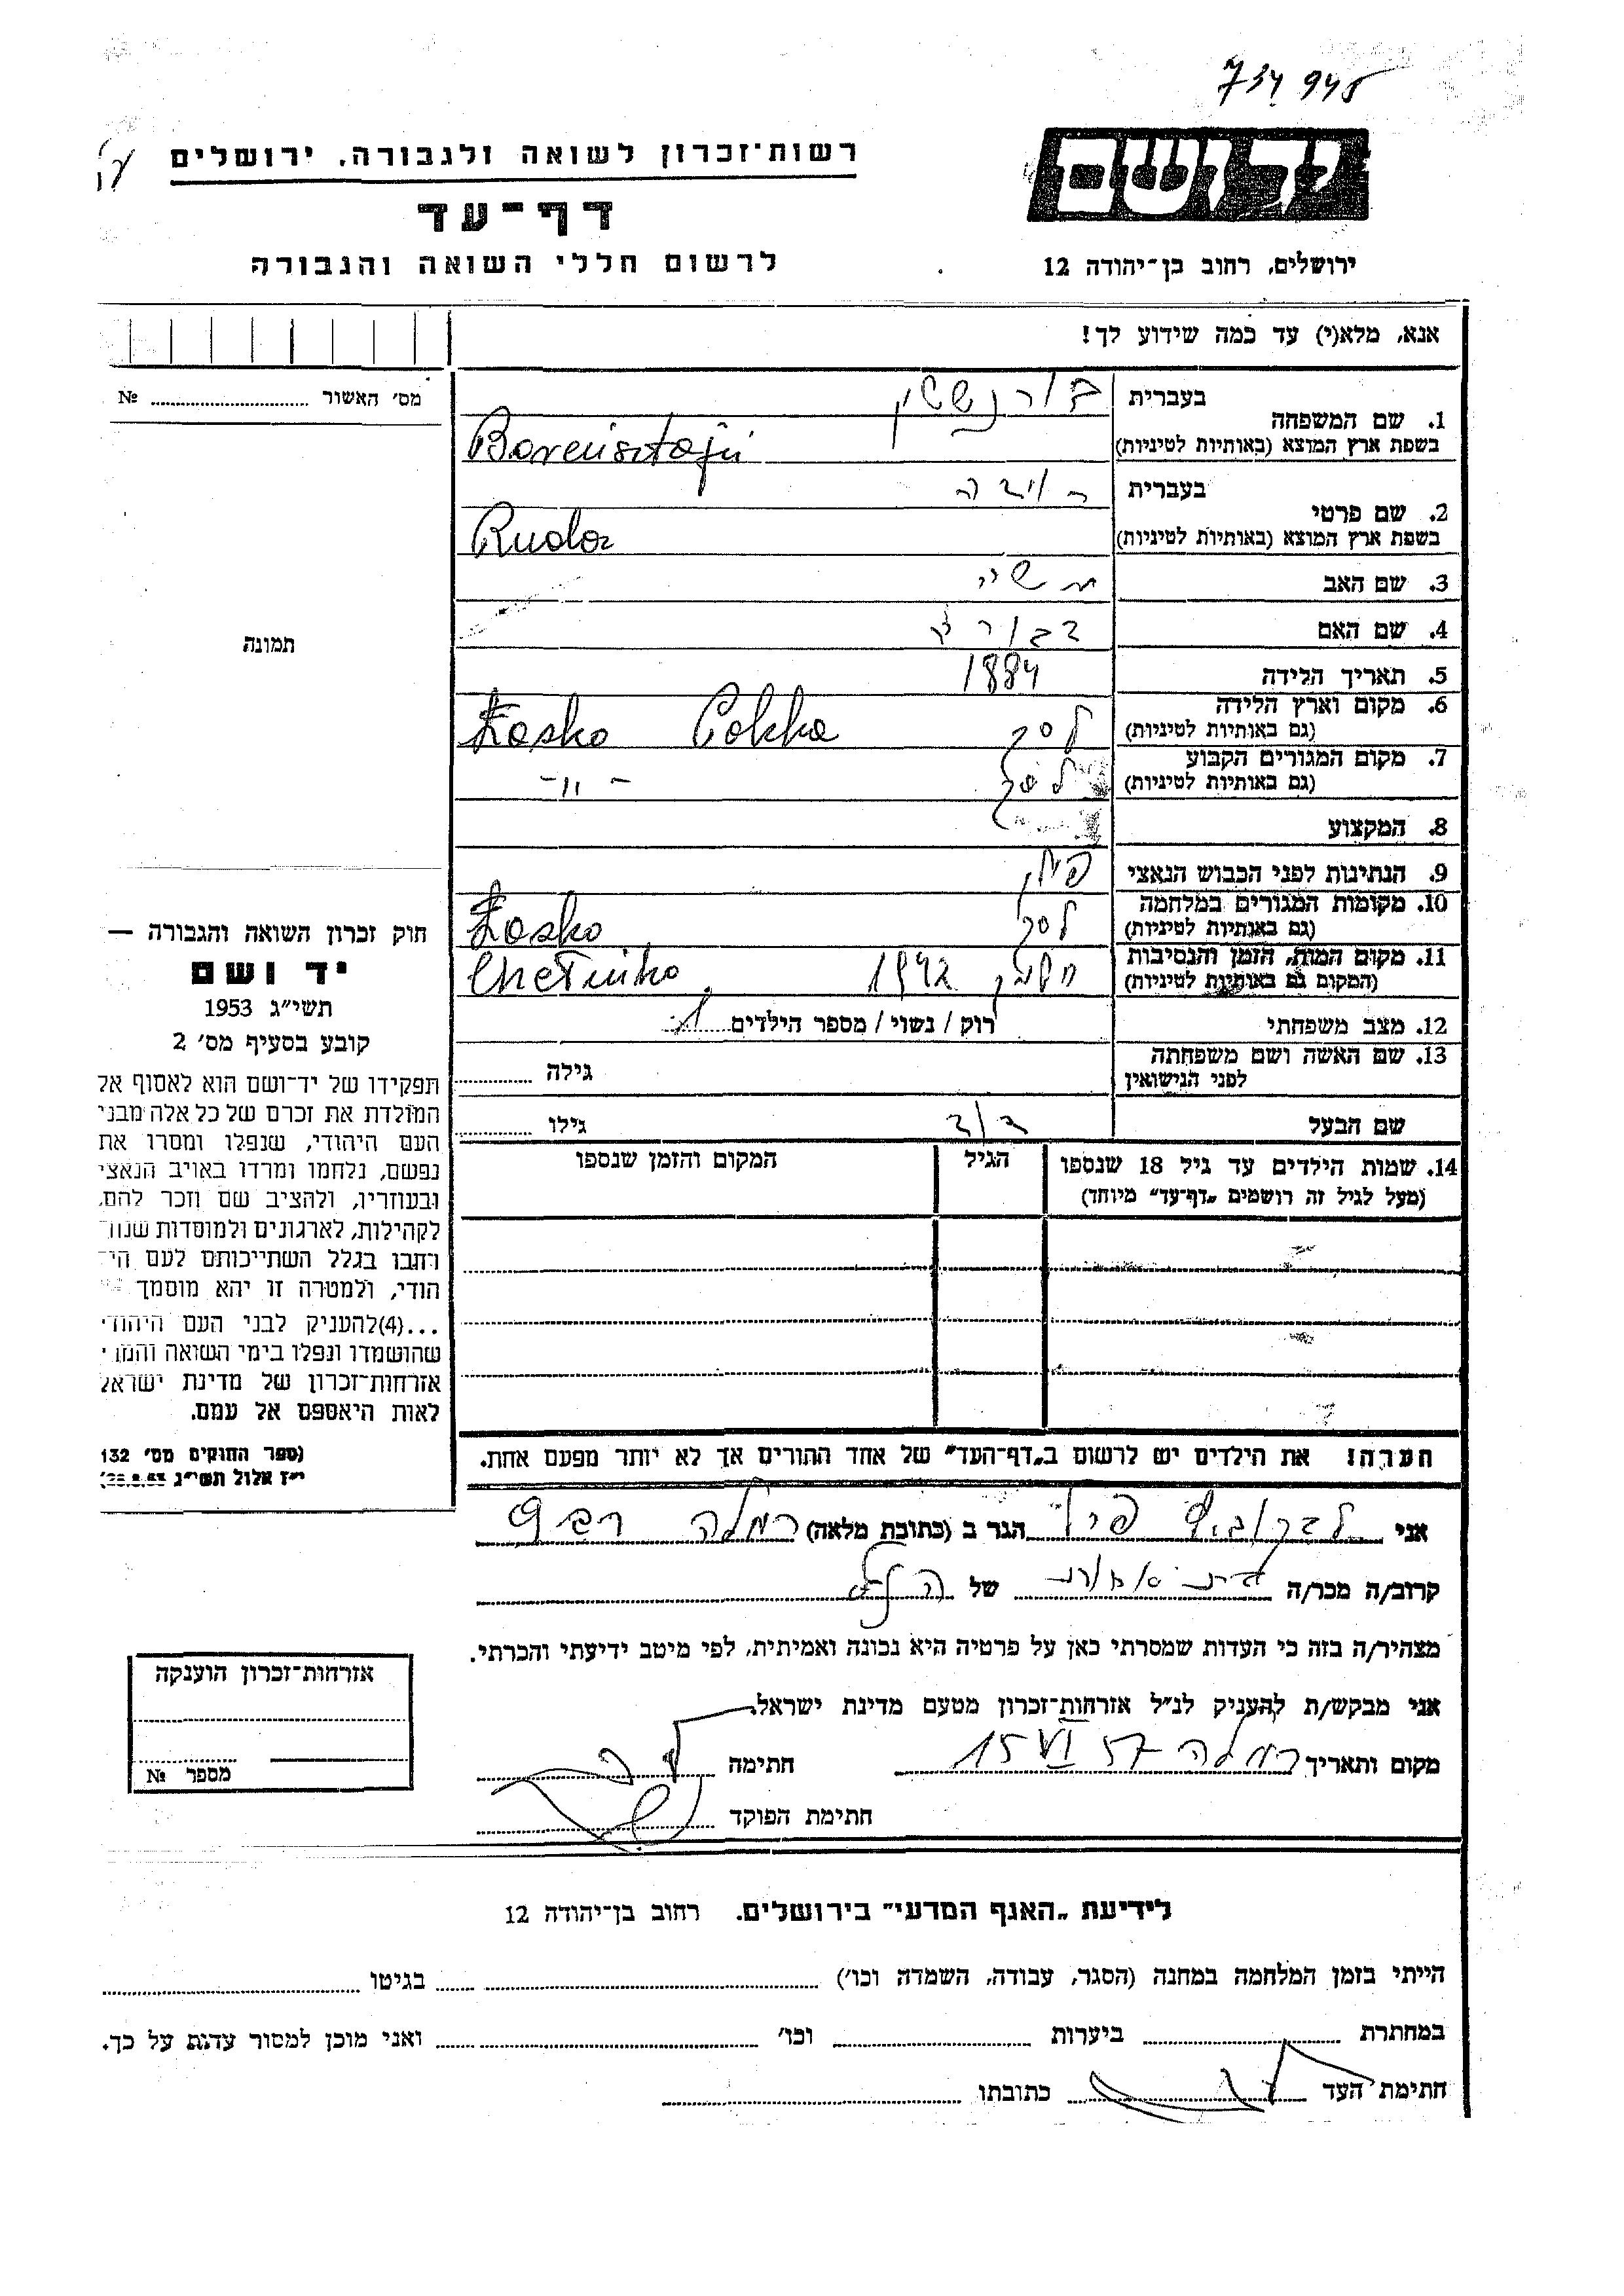 734 945
רשות־זכרון לשואה ולגבורה, ירושלים
יד ושם
דף־עד
לרשום חללי השואה והגבורה
ירושלים, רחוב בן־יהודה 12
אנא, מלא(י) עד כמה שידוע לך!
מס׳ האשור № 
1. שם המשפחה
בעברית
בשפת ארץ המוצא (באותיות לטיניות)
Borensztajn
2. שם פרטי
בעברית
בשפת ארץ המוצא (באותיות לטיניות)
3. שם האב
4. שם האם
5. תאריך הלידה 1884
6. מקום וארץ הלידה
(גם באותיות לטיניות) לסק
7. מקום המגורים הקבוע
(גם באותיות לטיניות) לסק - " -
8. המקצוע
9. הנתינות לפני הכבוש הנאצי פולין
10. מקומות המגורים במלחמה
(גם באותיות לטיניות) לסק
11. מקום המות, הזמן והנסיבות
(המקום גם באותיות לטיניות) חלמנו 1942
12. מצב משפחתי רוק / נשוי / מספר הילדים
13. שם האשה ושם משפחתה
לפני הנישואין גילה
שם הבעל דוד גילו
14. שמות הילדים עד גיל 18 שנספו
(מעל לגיל זה רושמים „דף־עד” מיוחד)
הגיל
המקום והזמן שנספו
תמונה
חוק זכרון השואה והגבורה —
יד ושם
תשי״ג 1953
קובע בסעיף מס׳ 2
תפקידו של יד־ושם הוא לאסוף אל
המולדת את זכרם של כל אלה מבני
העם היהודי, שנפלו ומסרו את
נפשם, נלחמו ומרדו באויב הנאצי
ובעוזריו, ולהציב שם וזכר להם,
לקהילות, לארגונים ולמוסדות שנח־
רחבו בגלל השתייכותם לעם הי־
הודי, ולמטרה זו יהא מוסמך
...(4) להעניק לבני העם היהודי
שהושמדו ונפלו בימי השואה והמרי
אזרחות־זכרון של מדינת ישראל
לאות היאספם אל עמם.
(ספר החוקים מס׳ 132
י״ז אלול תשי״ג
הערה! את הילדים יש לרשום ב„דף־העד” של אחד ההורים אך לא יותר מפעם אחת.
אני הגר ב (כתובת מלאה) רמלה
קרוב/ה מכר/ה של
מצהיר/ה בזה כי העדות שמסרתי כאן על פרטיה היא נכונה ואמיתית, לפי מיטב ידיעתי והכרתי.
אני מבקש/ת להעניק לנ״ל אזרחות־זכרון מטעם מדינת ישראל.
מקום ותאריך רמלה 15 VI 57 חתימה
חתימת הפוקד
אזרחות־זכרון הוענקה
מספר №
לידיעת „האגף המדעי” בירושלים. רחוב בן־יהודה 12
הייתי בזמן המלחמה במחנה (הסגר, עבודה, השמדה וכו׳) בגיטו
במחתרת ביערות וכו׳ ואני מוכן למסור עדות על כך.
חתימת העד כתובתו